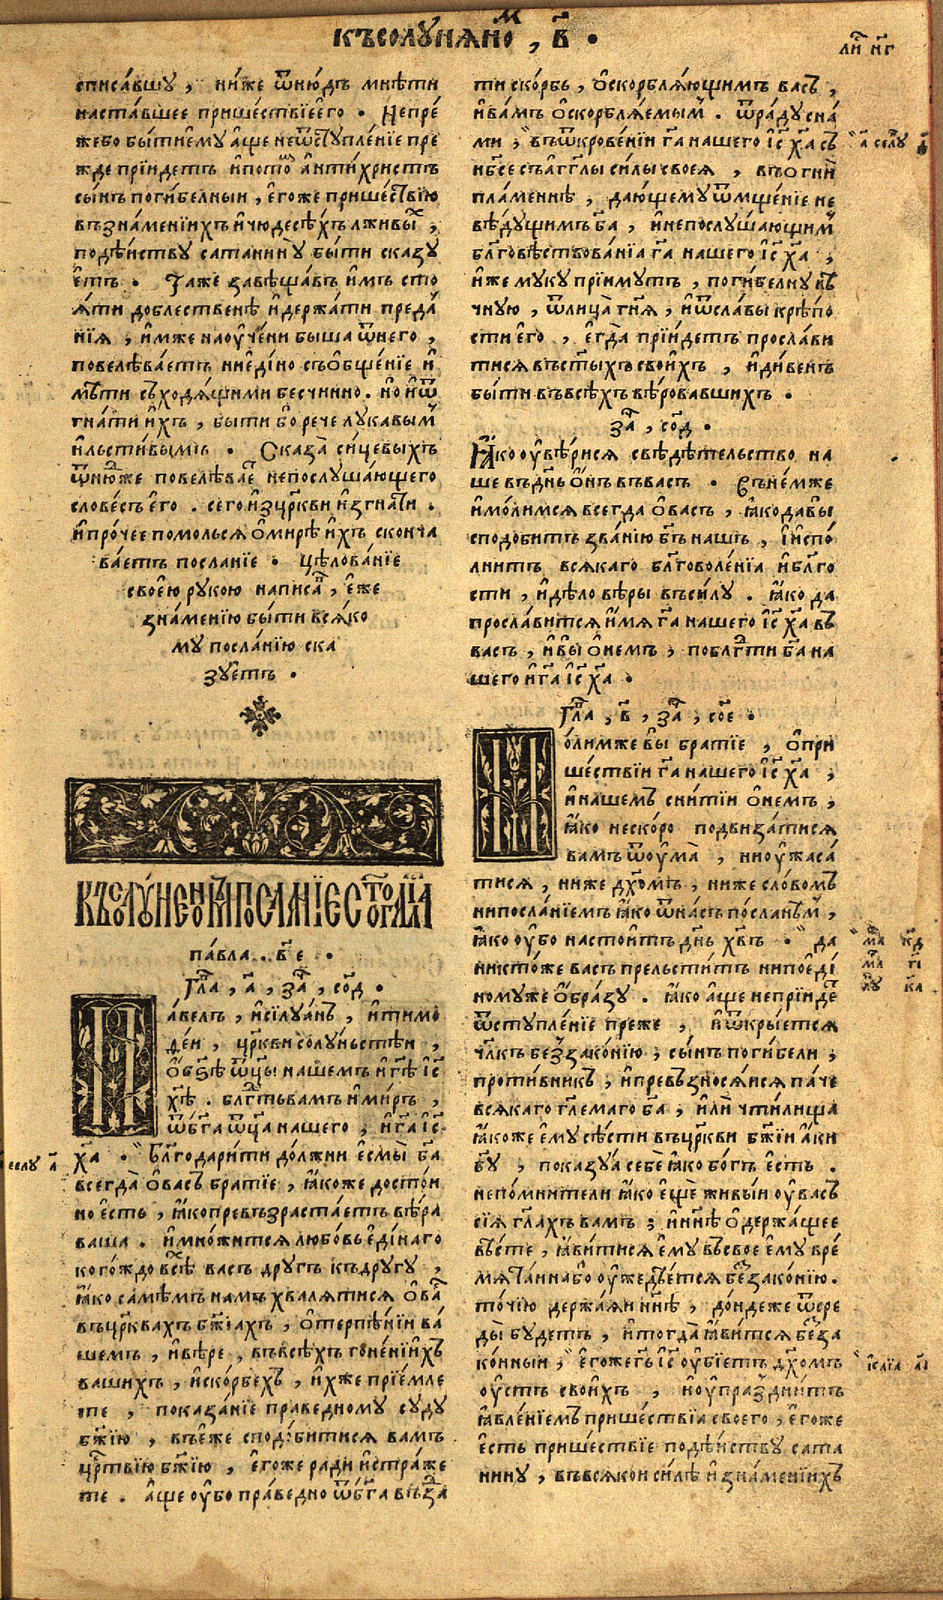 КъсолꙋнѧноМ , в҃ .
ли҃ н҃г
списа́вшꙋ , ни́же ѿню́дъ мнѣ́ти
наста́вшее прише́ствїе е҆го̀ . Непре́
жебо бы́ти емꙋ̀ а҆́ще неѿстꙋпле́нїе пре
жде прїи́детъ и҆пото́ а҆нти́христъ
сы́нъ погі́белныи , е҆го́же прише́ствїю
въ зна́менїихъ и҆чюдесѣ́хъ лжи́вы ,
подѣ́иствꙋ сатанинꙋ̀ бы́ти сказꙋ
е҆тъ . Та́же завѣща́въ и҆́мъ сто
ѧ́ти до́блественѣ и҆держа́ти преда́
нїѧ , и҆́мже наꙋче́ни бы́ша ѿнего̀ ,
повелѣва́етъ ниеди́но съѻбще́нїе и҆
мѣ́ти съходѧ́щими бесчи́нно . но и҆ѿ
гна́ти и҆́хъ , бы́ти бо рече лꙋка́вым
и҆льсти́вымъ . Сказа̀ си́цевыхъ
ѿню́же повелѣва́е непослꙋша́ющего
словесъ е҆го̀ . сего̀ и҆зцр҃кви и҆згна́ти .
и҆про́чее помо́льсѧ ѻ҆ми́рѣ и҆́хъ сконча
ва́етъ посла́нїе . цѣлова́нїе
свое́ю рꙋко́ю написа̀ , е҆́же
зна́менїю бы́ти всѧ́ко
мꙋ посла́нїю ска
зꙋ́етъ .
Къ солꙋнеѡм посланїе ст҃го апⷭ҇ла
па́вла . в҃ е .
Гла҃ , а҃ , за҃ , со҃д .
Па́велъ , и҆силꙋа́нъ , и҆тимо
ѳе́и , цр҃кви солꙋ́ньстѣи ,
ѻ҆бз҃ѣ ѻ҆ц҃ы нашемъ и҆гд҃ѣ і҆с҃
хр҃ѣ . блг҃ть вамъ и҆ми́ръ ,
ѿбг҃а ѻ҆ц҃а на́шего , и҆гд҃а і҆с҃
х҃а . Благодари́ти до́лжни е҆смы̀ бг҃а
всегда̀ ѻ҆ва́съ бра́тїе , ꙗ҆́коже досто́и
но е҆́сть , ꙗ҆́ко превъзраста́етъ вѣ́ра
ва́ша . и҆мно́житсѧ любо́вь е҆ди́наго
кого́ждо всѣ́ васъ дрꙋ́гъ къдрꙋ́гꙋ ,
ꙗ҆́ко са́мѣмъ на́мъ хвали́тисѧ ѻ҆ва́
въцр҃квахъ бж҃їахъ , ѻ҆терпѣ́нїи ва́
шемъ , и҆вѣ́ре , въвсѣ́хъ гоне́нїихъ
ва́шихъ , и҆ско́рбехъ , и҆́хже прїе́мле
те , показа́нїе пра́ведномꙋ сꙋдꙋ
бж҃їю , въе҆́же сподо́битисѧ ва́мъ
цр҃твїю бж҃їю , е҆го́же ра́ди и҆стра́же
те . А҆́ще ᲂу҆бо пра́ведно ѿбг҃а възда
селꙋ а҃
ти ско́рбь , ѻ҆скорблѧ́ющимъ ва́съ ,
и҆ва́мъ ѻ҆скорблѧ́емым . ѿра́дꙋ сна́
ми ; въѿкрове́нїи гд҃а нашего і҆с҃ х҃а съ
нб҃се съа҆́гг҃лы си́лы своеѧ̀ , въѻгнѝ
пла́меннѣ , даю́щемꙋ ѿмще́нїе не
вѣ́дꙋщимъ бг҃а , и҆непослꙋ́шающим
бл҃говѣствова́нїа гд҃а нашего і҆с҃ х҃а ,
и҆́же мꙋ́кꙋ прїи́мꙋтъ , поги́белнꙋ вѣ
чнꙋю , ѿлица̀ гд҃нѧ , и҆ѿсла́вы крѣ́по
сти е҆го̀ , е҆гда̀ прїи́детъ просла́ви
тисѧ въст҃ы́хъ свои́хъ , и҆ди́венъ
бы́ти въвсѣ́хъ вѣ́ровавшихъ .
за҃ , со҃д .
Ꙗ҆ко ᲂу҆вѣ́рисѧ свѣдѣ́тельство на
ше въдн҃ь ѻ҆нъ въва́съ . Ѡнемже
и҆мо́лимсѧ всегда̀ ѻ҆ва́съ , ꙗ҆́ко да вы̀
сподо́битъ зва́нїю бг҃ъ на́шъ , и҆и҆спо́
лнитъ всѧ́каго бл҃говоле́нїа и҆бл҃го
сти , и҆дѣ́ло вѣ́ры въси́лꙋ . ꙗ҆́ко да
просла́витсѧ и҆́мѧ гд҃а нашего і҆с҃ х҃а въ
ва́съ , и҆вы̀ ѻ҆не́мъ , побл҃гдти бг҃а на
шего и҆гд҃а і҆с҃ х҃а .
Гла҃ , в҃ , за҃ , со҃е .
Молимже вы̀ бра́тїе , ѻ҆при
ше́ствїи гд҃а нашего і҆с҃ х҃а ,
и҆на́шемъ сни́тїи ѻ҆не́мъ ,
ꙗ҆́ко неско́ро подви́затисѧ
ва́мъ ѿᲂума̀ , ниᲂужаса́
тисѧ , ни́же дх҃омъ , ни́же сло́вомъ
нипосла́нїемъ ꙗ҆́ко ѿна́съ по́сланым ,
ꙗ҆́ко ᲂу҆́бо настои́тъ дн҃ь хв҃ъ . да
никто́же ва́съ прельсти́тъ нипое҆ди́
номꙋже ѻ҆́бразꙋ . ꙗ҆́ко а҆́ще непрїи́де
ѿстꙋпле́нїе пре́же , и҆ѿкры́етсѧ
чл҃къ беззако́нїю ; сы́нъ поги́бели ;
проти́вникъ , и҆превъзносѧ́исѧ па́че
всѧ́каго гл҃емаго бг҃а ; и҆лѝ чти́лища
ꙗ҆́коже е҆мꙋ сѣ́сти въцр҃кви бж҃їи а҆́ки
бг҃ꙋ , показꙋ́а себѐ ꙗ҆́ко бо́гъ е҆́сть .
непо́мнители ꙗ҆́ко е҆щѐ живы́и ᲂу҆ва́съ
сїѧ̀ гл҃ахъ ва́мъ ; и҆нн҃ѣ ѻ҆держа́щее
вѣ́сте , ꙗ҆ви́тисѧ е҆мꙋ въсвое́ е҆мꙋ вре́
мѧ та́ина бо ᲂу҆же дѣ́етсѧ беззако́нїю .
то́чїю держа́ѧи нн҃ѣ , до́ндеже ѿсре
ды̀ бꙋ́детъ , и҆тогда̀ ꙗ҆ви́тсѧ безза
ко́нныи , е҆го́же гд҃ь і҆с҃ ᲂу҆бїе́тъ дх҃омъ
ᲂу҆стъ свои́хъ , и҆ᲂу҆праздни́тъ
ꙗ҆вле́нїемъ прише́ствїа своего̀ , е҆го́же
е҆́сть прише́ствїе подѣ́иствꙋ сата
нинꙋ , въвсѧ́кои си́лѣ и҆зна́менїихъ
а҃ селꙋ
мѳ҃ к҃д
мр҃ г҃і
лꙋ к҃а
и҆са́їа а҃і